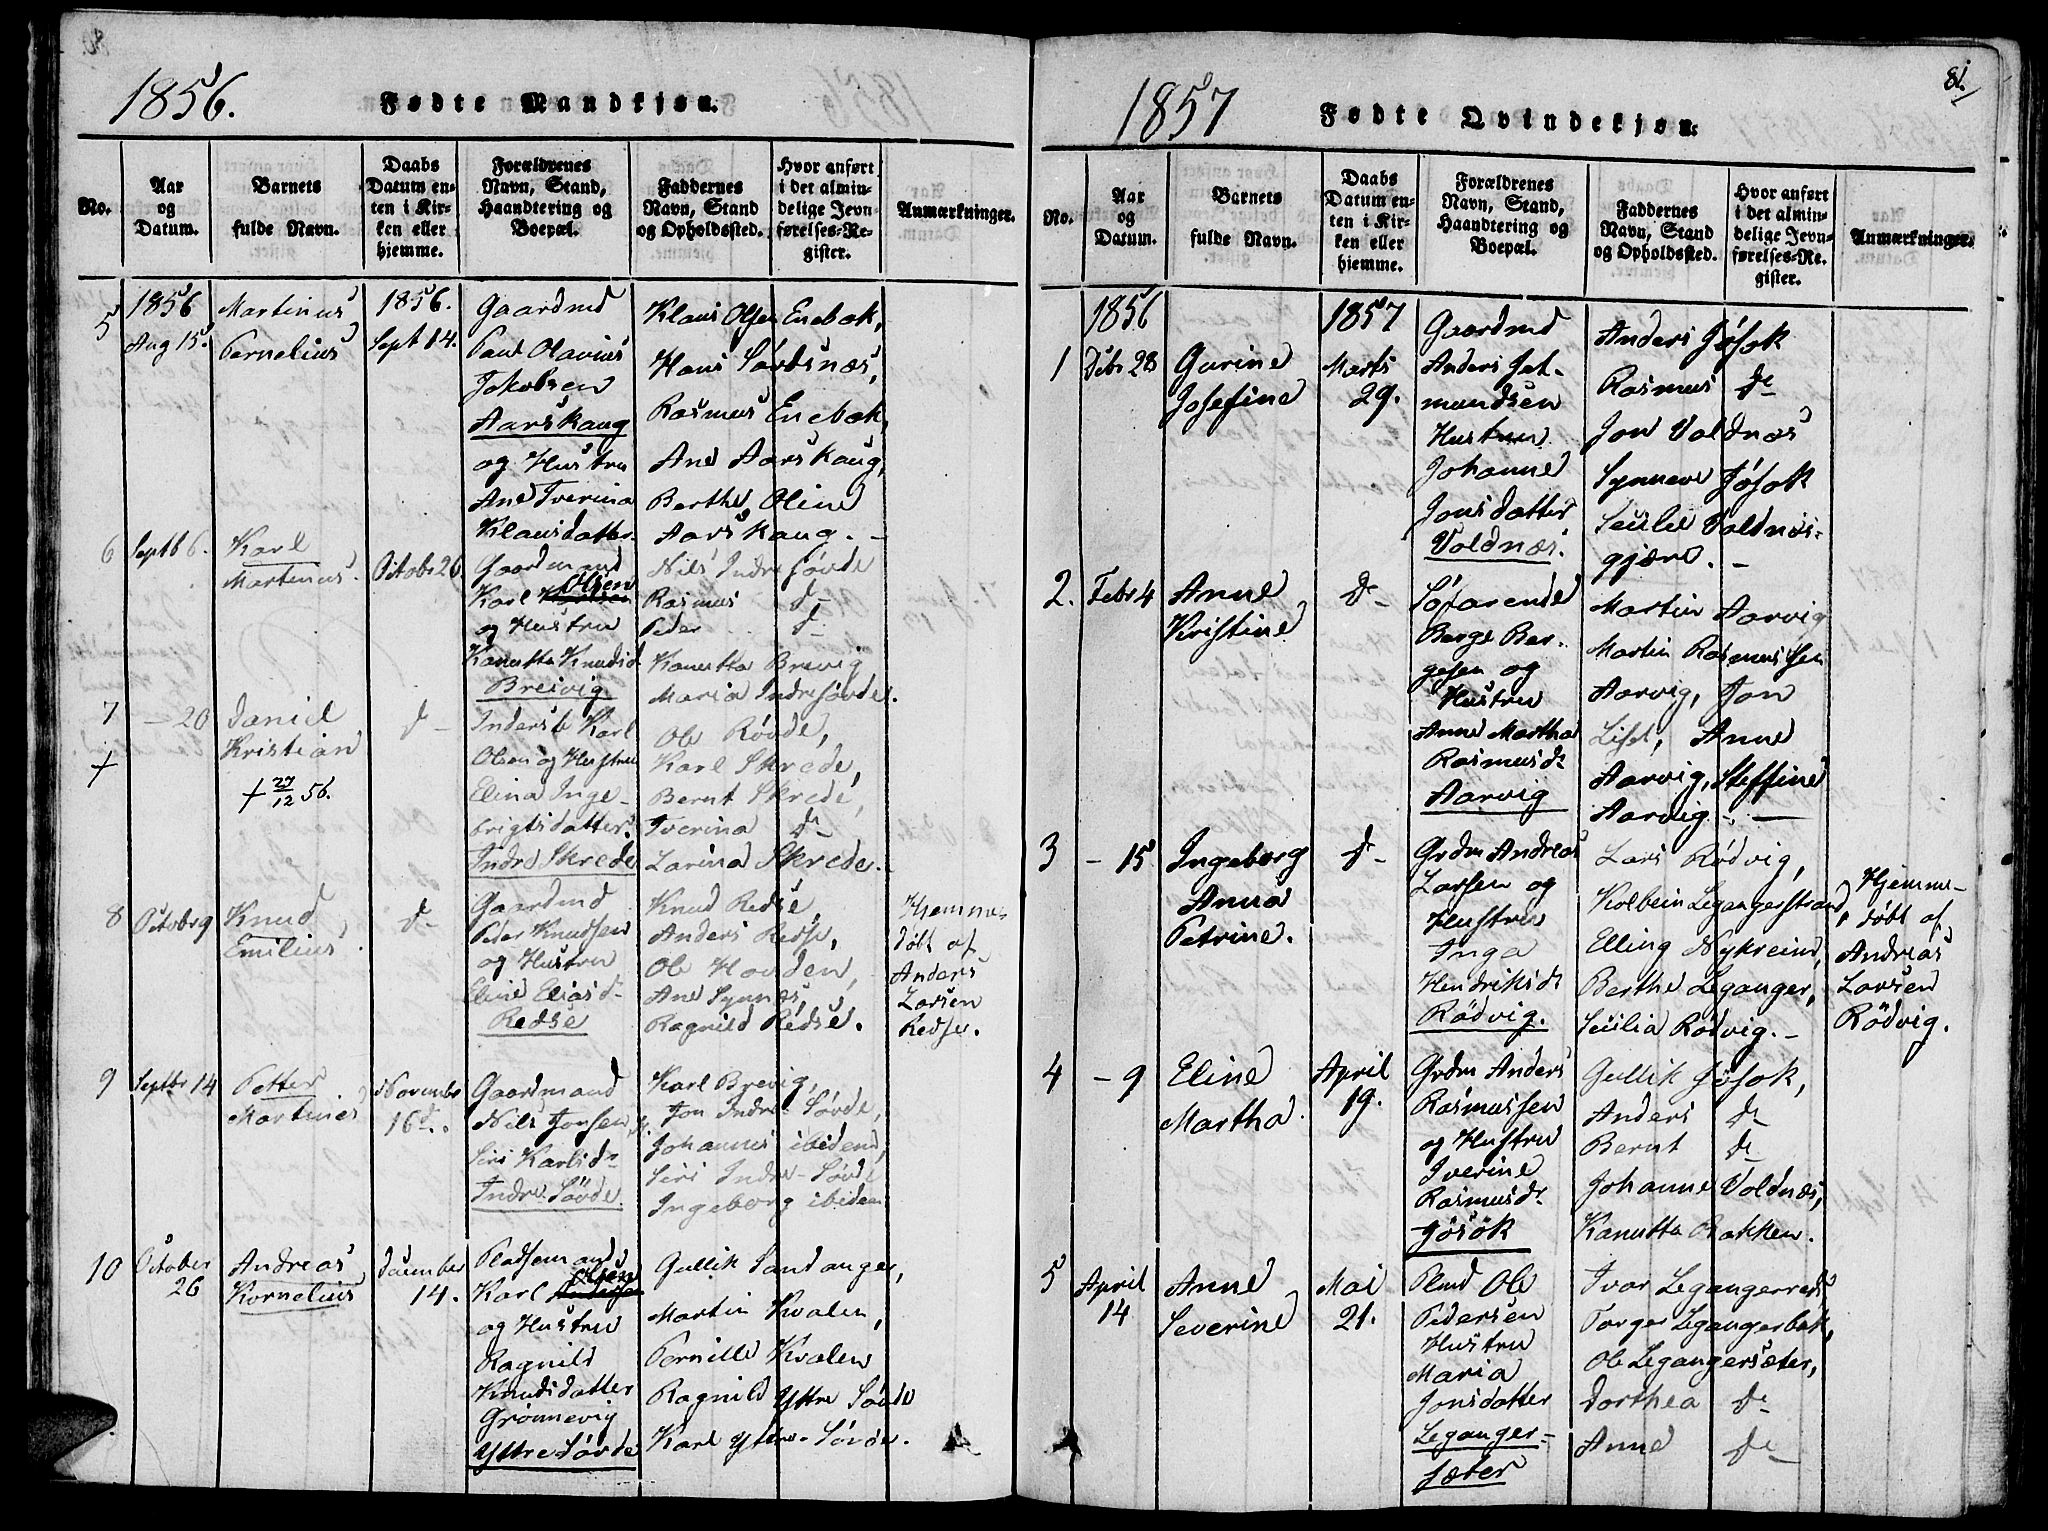 1856.
Fødte Mandkjøn.
No.
Aar og Datum.
Barnets fulde Navn.
Daabs Datum enten i Kirken eller hjemme.
Forældrenes Navn, Stand, Haandtering og Boepæl.
Faddernes Navn, Stand og Opholdssted.
Hvor anført i det almindelige Jevnførelses-Register.
Anmærkninger.
5
1856
Aug 15.
Martinus
Pernelius
1856.
Sept 14.
Gaardmd
Paul Olavius
Jakobsen
Aarskaug
og Hustru
Ane Iverina
Klausdatter.
Klaus Olsen Enebak,
Hans Sørdsnæs,
Rasmus Enebak,
Ane Aarskaug,
Berthe Oline
Aarskaug. -
6
Septb 6.
Karl
Martinus.
Octobr 26
Gaardmand
Karl Olsen
og Hustru
Kanutta Knudsd
Breivig
Nils Indre Søvde
Rasmus do
Peder do
Kanutta Brevig
Maria Indresøvde.
7
+
- 20
Daniel
Kristian
+ 27/12 56.
d-
Inderst Karl
Olsen og Hustru
Elina Inge-
brigtsdatter.
Indre Skrede
Ole Røvde,
Karl Skrede,
Bernt Skrede,
Iverina do
Larina Skrede.
8
Octobr 9
Knud
Emilius.
d-
Gaardmd
Peder Knudsen
og Hustru
Eline Eliasd-
Redse
Knud Redse,
Anders Redse,
Ole Hovden,
Ane Synnæs,
Ragnild Redse.
Hjemme-
døbt af
Anders
Larsen
Redse.
9
Septbr 14
Petter
Martinus
Novembr
16d.
Gaardmand
Nils Jonsen
Siri Karlsd-
Indre Søvde.
Karl Brevig,
Jon Indre-Søvde,
Johannes ibidem,
Siri Indre-Søvde
Ingeborg ibidem
10
October
26
Andreas
Kornelius
December
14.
Pladsemand
Karl Olsen
og Hustru
Ragnild
Knudsdatter
Grønnevig
Yttre Søvde
Gullik Sandanger,
Martin Kvalen,
Pernille Kvalen
Ragnild Yttre Søvde
Karl Yttre-Søvde.
81.
1857
Fødte Qvindekjøn.
No.
Aar og Datum.
Barnets fulde Navn.
Daabs Datum enten i Kirken eller hjemme.
Forældrenes Navn, Stand, Haandtering og Boepæl.
Faddernes Navn, Stand og Opholdssted.
Hvor anført i det almindelige Jevnførelses-Register.
Anmærkninger.
1
1856
Debr 28
Gurine
Josefine
1857
Marts
29.
Gaardmd
Anders Jet-
mundsen
Hustru
Johanne
Jonsdatter
Voldnæs.
Anders Jøsok
Rasmus do
Jon Voldnæs
Synneve Jøsok
Secilie Voldnæs-
gjære. -
2.
Febr 4
Anne
Kristine
d-
Berge Ber-
gesen og
Hustru
Anne Martha
Rasmusd-
Aarvig
Martin Aarvig
Martin Rasmussen
Aarvig, Jon
List, Anne
Aarvig, Steffine
Aarvig. -
3
- 15
Ingeborg
Anna
Petrine.
d-
Grdm Andreas
Larsen og
Hustru
Inga
Hendriksd-
Rødvig.
Lars Rødvig,
Kolbein Legangerstrand,
Elling Nykreim,
Berthe Leganger,
Secilia Rødvig. -
Hjemme-
døbt af
Andreas
Larsen
Rødvig.
4
- 9
Eline
Martha.
April
19.
Grdm Anders
Rasmussen
og Hustru
Iverine
Rasmusd-
Jøsok
Gullik Jøsok,
Anders do
Bernt do
Johanne Voldnæs,
Kanutta Bakken.
5
April
14
Anne
Severine
Mai
21.
Plmd Ole
Pedersen
Hustru
Maria
Jonsdatter
Leganger-
sæter
Torger Legangerbak,
Ole Legangersæter,
Dorthea do
Anne do